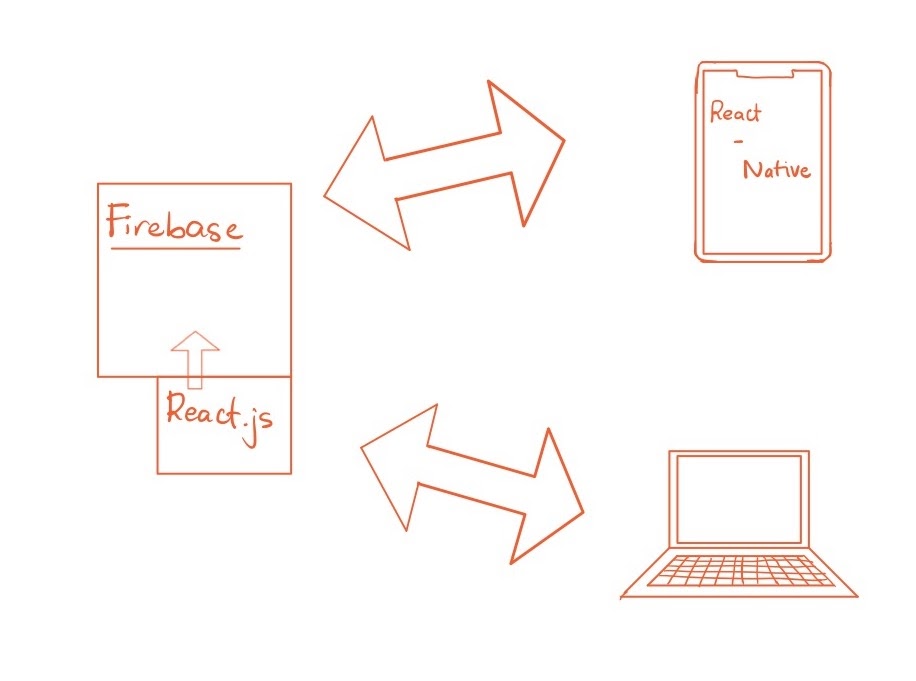 Firebase
React.js
React
-
Native